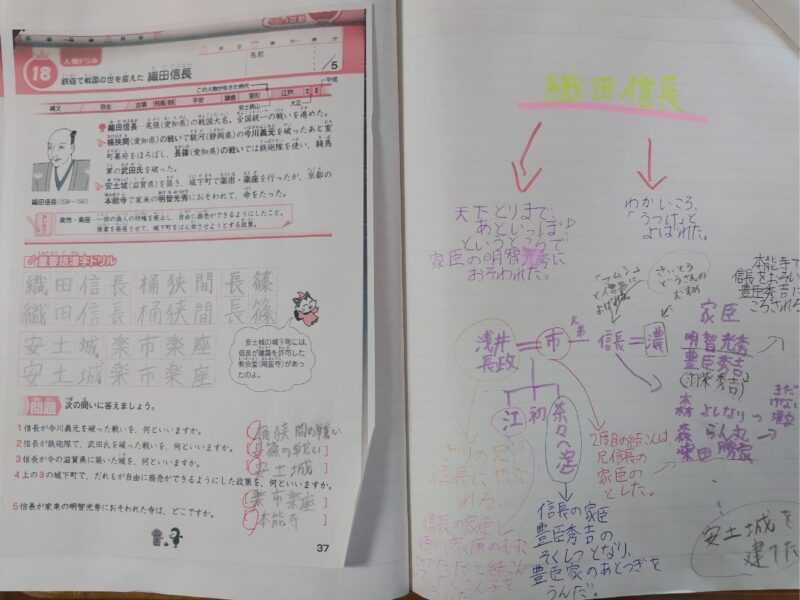 人物ドリル
18
鉄砲で戦国の世を変えた 織田信長
名前
/5
この人物が生きた時代
平成
縄文 弥生 古墳 飛鳥 平安 鎌倉 室町 江戸
安土桃山
大正
織田信長…尾張(愛知県)の戦国大名。全国統一の戦いを進めた。
桶狭間(愛知県)の戦いで駿河(静岡県)の今川義元を破ったあと室
町幕府をほろぼし、長篠(愛知県)の戦いでは鉄砲隊を使い、騎馬
軍の武田氏を破った。
安土城(滋賀県)を築き、城下町で楽市・楽座を行ったが、京都の
本能寺で家来の明智光秀におそわれて、命をたった。
織田信長(1534〜1582)
楽市・楽座…一部の商人の特権を廃止し、自由に商売ができるようにしたこと。
商業を発展させて、城下町をはん栄させようとする政策。
重要語漢字ドリル
織田信長 桶狭間 長篠
織田信長 桶狭間 長篠
安土城 楽市楽座
安土城 楽市楽座
安土城の城下町には、
信長が建築を許可した
教会堂(南蛮寺)があっ
たのよ。
問題 次の問いに答えましょう。
1 信長が今川義元を破った戦いを、何といいますか。
桶狭間の戦い
2 信長が鉄砲隊で、武田氏を破った戦いを、何といいますか。
長篠の戦い
3 信長が今の滋賀県に築いた城を、何といいますか。
安土城
4 上の3の城下町で、だれもが自由に商売ができるようにした政策を、何といいますか。
楽市楽座
5 信長が家来の明智光秀におそわれた寺は、どこですか。
本能寺
37
織田信長
天下とりまで、
あといっぽ♪
というところで
家臣の明智光秀に
おそわれた。
わかいころ、
「うつけ」と
よばれた。
「マムシ」
さいとう
どうさんの
むすめ
本能寺で
信長をおそい
豊臣秀吉に
ころされる
浅井
長政
市
兄弟
信長
濃
江
初
茶々
家臣
明智光秀
豊臣秀吉
(羽柴秀吉)
森 よしなり
森 らん丸
柴田 勝家
ぎりの兄、
信長にやぶ
れる。
2度目の結こんは、
兄信長の
家臣の
とした。
信長の家臣
信長の家臣
豊臣秀吉の
そくしつとなり、
豊臣家のあとつぎを
うんだ。
安土城を
建てた